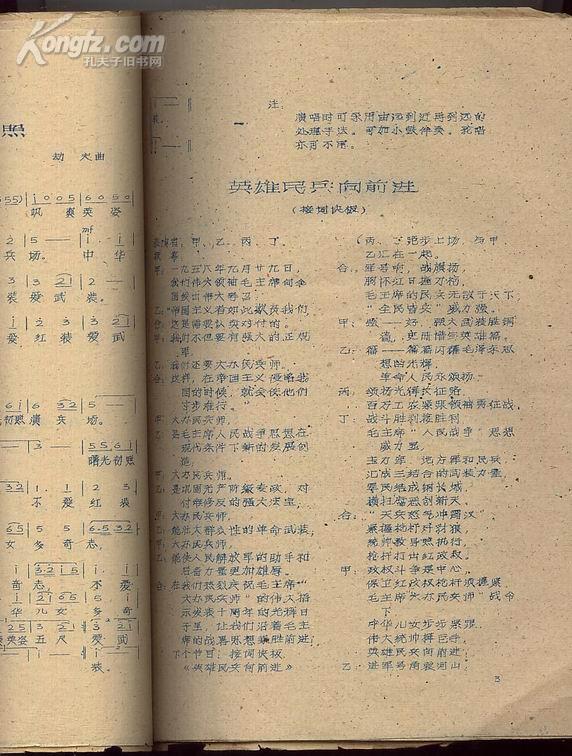 Kongfz.com
孔夫子旧书网
照
劫夫曲
飒爽英姿
兵场。中华
装爱武装。
爱红装爱武
初照演兵场。
曙光初照
不爱红装
女多奇志,
奇志,不爱
华儿女多奇
飒爽英姿五尺爱武
装。
注:
演唱时可采用由远到近再到远的
处理手法。可加小鼓伴奏。轮唱
亦可不用。
英雄民兵向前进
(接词快板)
表演者:甲、乙、丙、丁。
甲:一九五八年九月廿九日,
我们伟大领袖毛主席向全
国发出伟大号召:
乙:"帝国主义者如此欺负我们,
合:这是需要认真对付的。
甲:我们不但要有强大的正规
军,
乙:我们还要大办民兵师。
合:这样,在帝国主义侵略我
国的时候,就会使他们
寸步难行。"
甲:大办民兵师,
乙:是毛主席人民战争思想在
现代条件下新的发展创
造。
甲:大办民兵师,
乙:是巩固无产阶级专政,对
付帝修反的强大法宝,
甲:大办民兵师,
乙:能壮大群众性的革命武装,
甲:大办民兵师,
乙:能使人民解放军的助手和
后备力量更加雄厚。
合:在我们热烈庆祝毛主席"
大办民兵师"的伟大指
示发表十周年的光辉日
子里,让我们沿着毛主
席的战略思想乘胜前进,
下个节目:接词快板
《英雄民兵向前进》
(丙、丁跑步上场,与甲
乙汇在一起。
合:军号响,战旗扬,
胸怀红日握刀枪,
毛主席的民兵无敌于天下
"全民皆兵"威力强。
甲:强——好,强大武装胜钢
墙,史册谱写英雄篇。
乙:篇——篇篇闪耀毛泽东思
想的光辉,
革命人民永颂扬。
丙:颂扬光辉长征路,
百万工农紧跟领袖勇征战,
丁:战斗胜利接胜利
毛主席"人民战争"思想
威力显。
主力军、地方军和民兵
汇成三结合的武装力量,
军民结成钢长城,
横扫窑恶创新天。
合:"天兵怒气冲霄汉"
紧握枪杆歼豺狼
统帅教导照执行,
枪杆打出红政权。
甲:政权斗争是中心,
保卫红政权枪杆须握紧
毛主席"大办民兵师"战令
下
中华儿女步步紧跟。
伟大统帅挥巨手,
英雄民兵向前进,
乙:进军号角震河山,
3